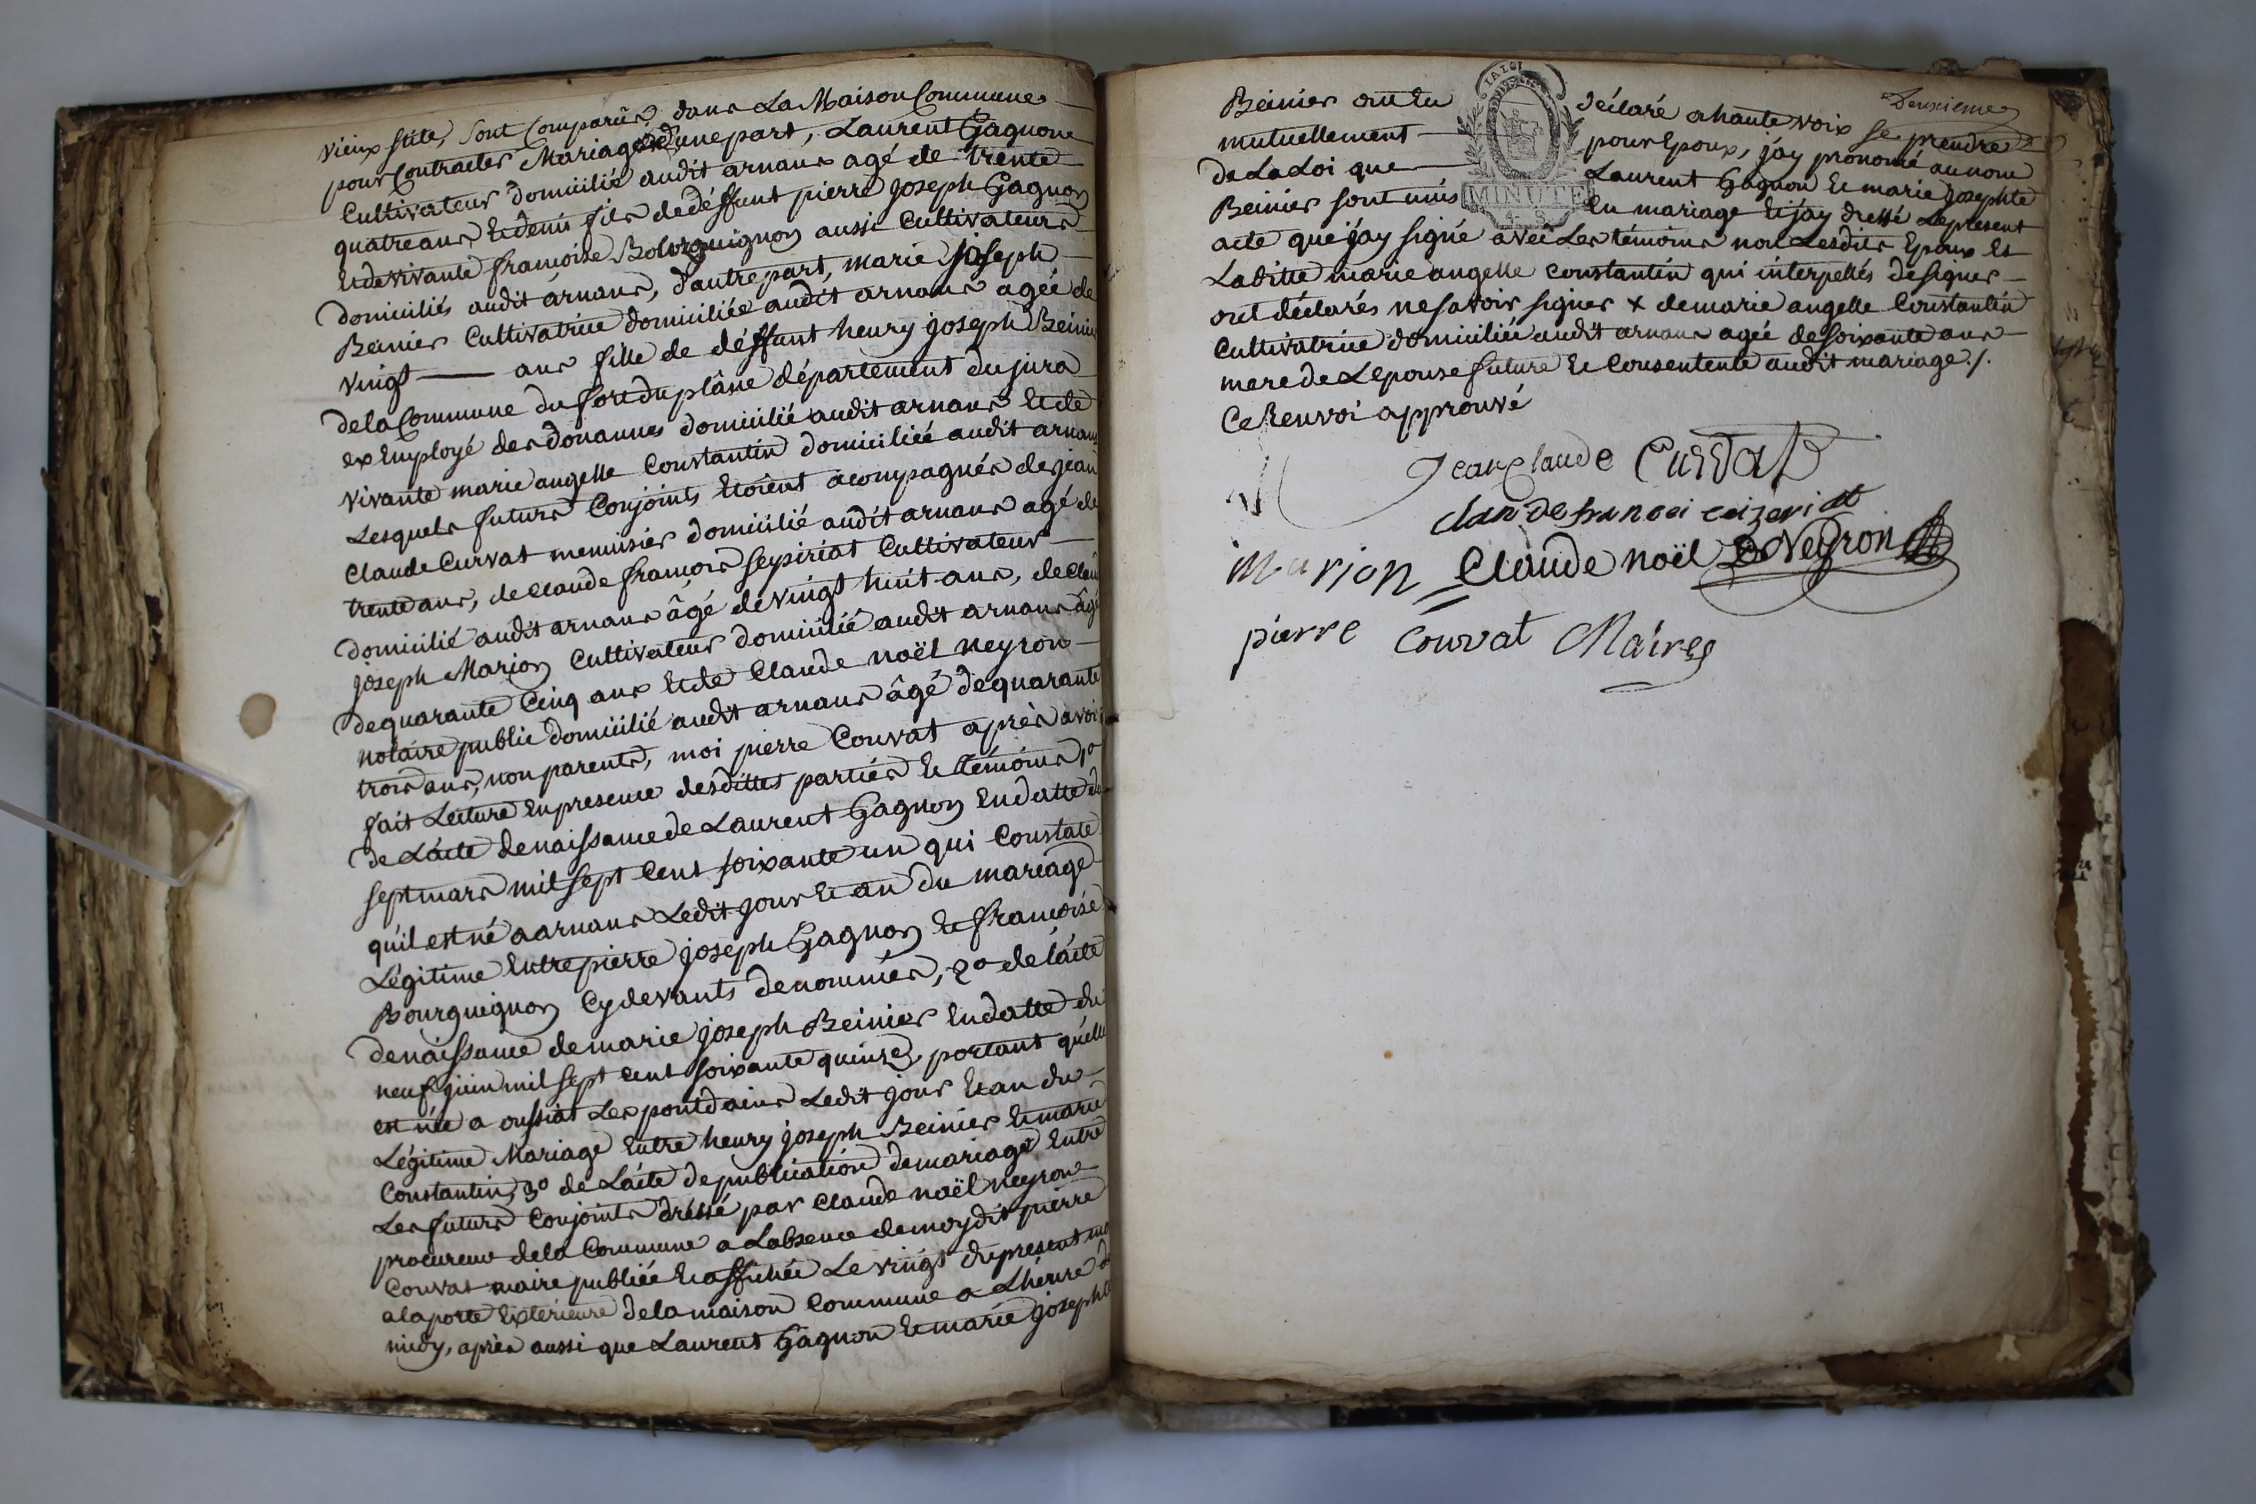 vieux stile, sont comparûs dans La Maison Commune
pour Contracter Mariage d'une part, Laurent Gagnon
Cultivateur domicilié audit arnans agé de trente
quatre ans et demi fils de déffunt pierre joseph Gagnon
Et de vivante francoise Bourguignon aussi Cultivateurs
domiciliés audit arnans, d'autre part, marie joseph
Beinier Cultivatrice domiciliée audit arnans agée de
vingt ans fille de déffunt henry joseph Beinier
de la Commune du fort du plâne département du jura
ex Employé des douannes domicilié audit arnans Et de
vivante marie angelle Constantin domiciliée audit arnans
Lesquels futurs Conjoints Etoient acompagnés de jean
Claude Curvat menuisier domicilié audit arnans agé de
trente ans, de Claude françois sepiriat Cultivateur
domicilié audit arnans âgé de vingt huit ans, de Clau
joseph Marion Cultivateur domicilié audit arnans âgé
de quarante Cinq ans Et de Claude noël neyron
notaire public domicilié audit arnans âgé de quarante
trois ans, non parents, moi pierre Couvat après avoir
fait Lecture En presence desdittes parties Et témoins 1o
de L'acte de naissance de Laurent Gagnon En datte du
sept mars mil sept Cent soixante un qui Constate
qu'il est né a arnans Ledit jour Et an du mariage
Légitime Entre pierre joseph Gagnon Et francoise
Bourguignon Cy devants denommés, 2o de l'acte
de naissance de marie joseph Beinier En datte du
neuf juin mil sept cent soixante quinze, portant qu'elle
est née a oussiat Les pontdains Ledit jour Et an du
Légitime Mariage Entre henry joseph Beinier Et marie
Constantin, 3o de L'acte de publication de mariage Entre
Les futurs Conjoints dréssé par Claude noël neyron
procureur de la Commune a Labsence de moydit pierre
Couvat maire publiée Et affichée Le vingt du present
a la porte Extérieure de la maison Commune a L'heure de
midy, après aussi que Laurent Gagnon Et marie josephte
Deuxieme
Beinier ont Eu déclaré a haute voix se prendre
mutuellement pour Epoux, j'ay prononcé au nom
de La Loi que Laurent Gagnon Et marie josephte
Beinier sont unis En mariage Et j'ay dréssé Le présent
acte que j'ay signé avec Les témoins non Lesdits Epoux Et
Laditte marie angelle Constantin qui interpellés de signer
ont déclarés ne savoir signer x de marie angelle Constantin
Cultivatrice domiciliée audit arnans agée de soixante ans
mere de L'epouse future Et Consentente audit mariage ./.
Ce Renvoi approuvé
LA LOI
MINUTE
4. S.
jean Claude Curvat
Marion Claude noël Neyron
pierre Couvat Maire